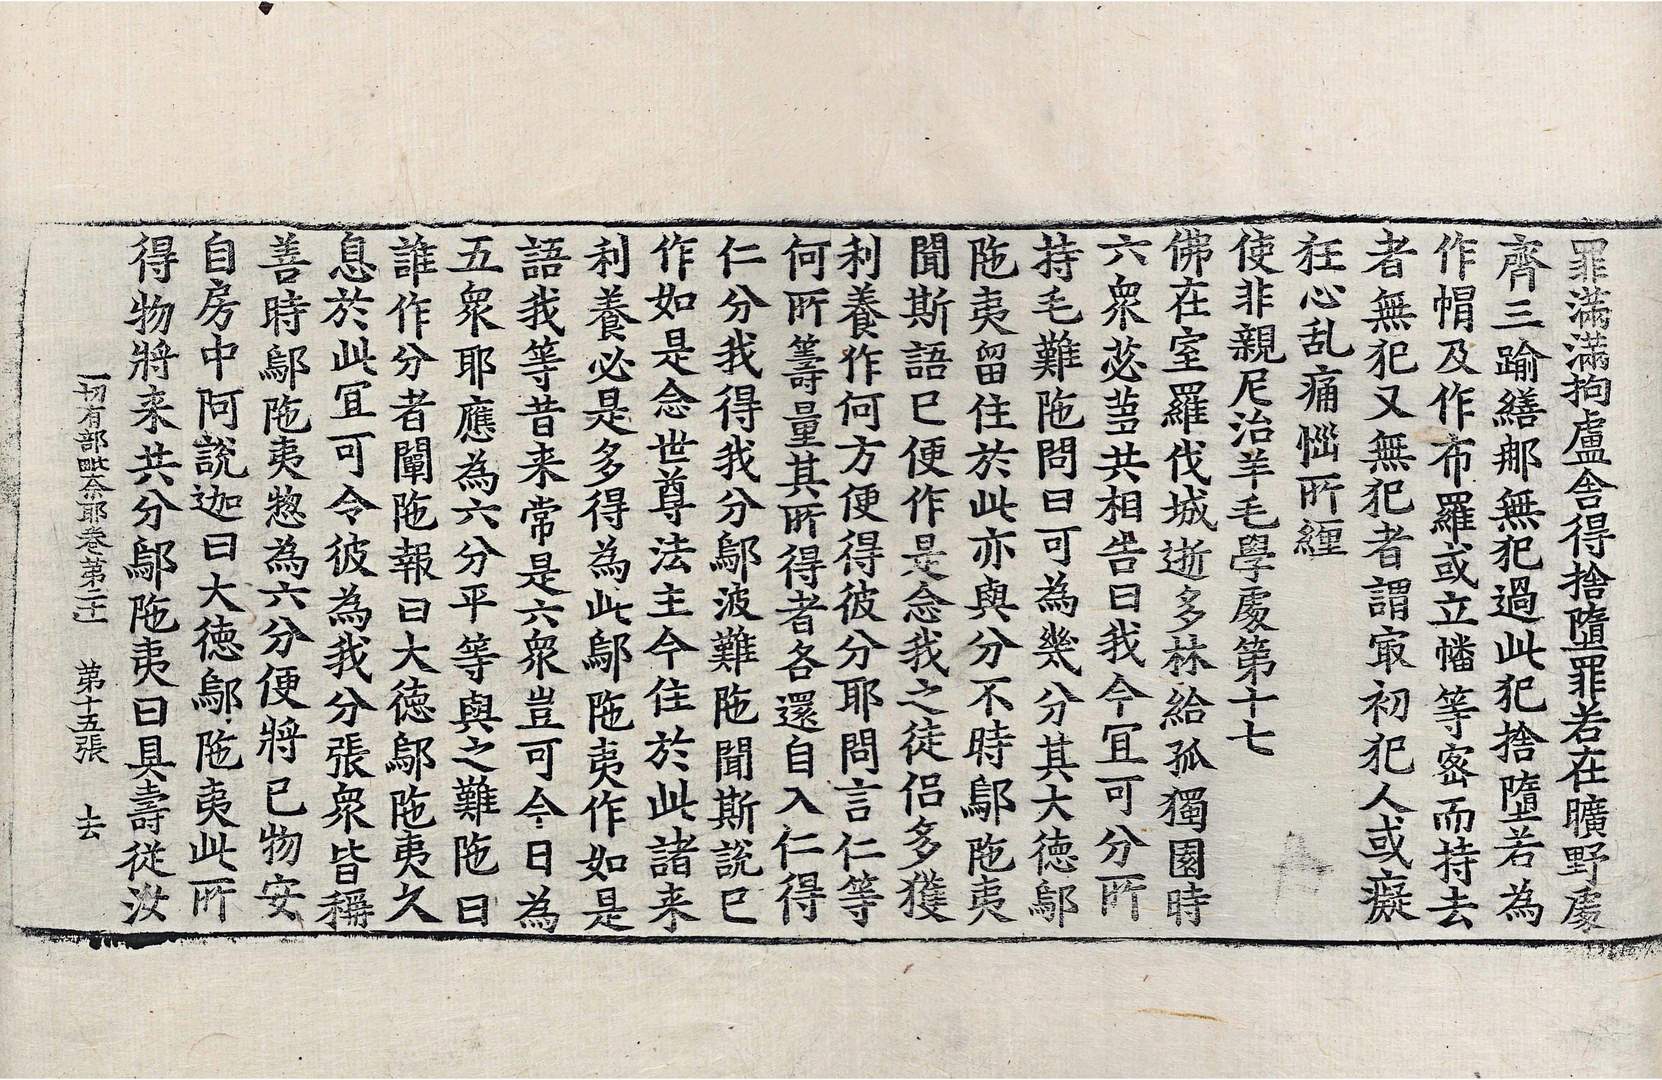 罪滿滿拘盧舍得捨墮罪若在曠野處
齊三踰繕那無犯過此犯捨墮若為
作帽及作布羅或立幡等密而持去
者無犯又無犯者謂冣初犯人或癡
狂心乱痛惱所纏
使非親尼治羊毛學處第十七
佛在室羅伐城逝多林給孤獨園時
六衆苾芻共相告曰我今冝可分所
持毛難陁問曰可為幾分其大德鄔
陁夷留住於此亦與分不時鄔陁夷
聞斯語已便作是念我之徒侶多獲
利養作何方便得彼分耶問言仁等
何所籌量其所得者各還自入仁得
仁分我得我分鄔波難陁聞斯說已
作如是念世尊法主今住於此諸来
利養必是多得為此鄔陁夷作如是
語我等昔来常是六衆豈可今日為
五衆耶應為六分平等與之難陁曰
誰作分者闡陁報曰大德鄔陁夷久
息於此冝可令彼為我分張衆皆稱
善時鄔陁夷惣為六分便將已物安
自房中阿說迦曰大德鄔陁夷此所
得物將来共分鄔陁夷曰具壽從汝
一切有部毗奈耶卷第二十一 第十五張 去